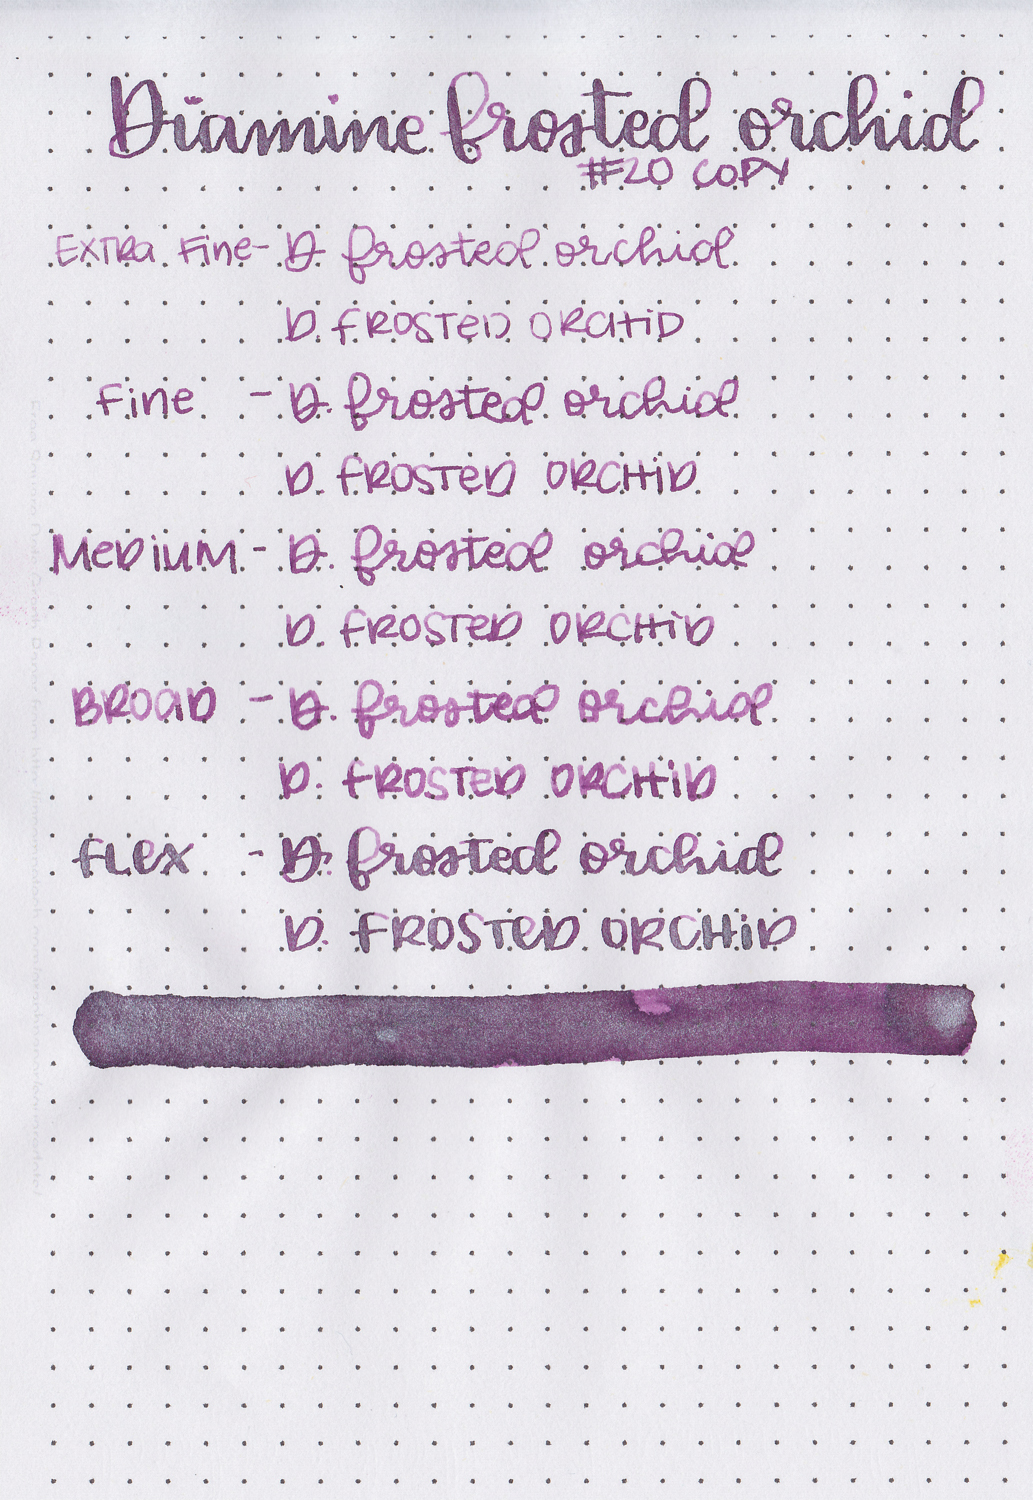 Diamine frosted orchid
#20 COPY
EXTRA Fine - D. frosted orchid
D. FROSTED ORCHID
Fine - D. frosted orchid
D. FROSTED ORCHID
MEDIUM - D. frosted orchid
D. FROSTED ORCHID
BROAD - D. frosted orchid
D. FROSTED ORCHID
FLEX - D. frosted orchid
D. FROSTED ORCHID